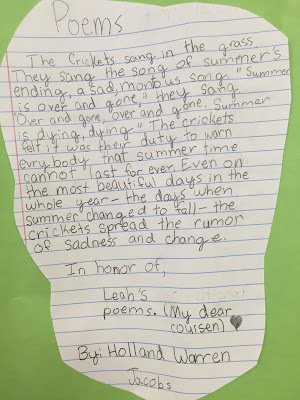 Poems
The Crickets sang in the grass
They sang the song of summer's
ending, a sad, montous song. "Summer
is over and gone," they sang.
"Over and gone, over and gone. Summer
is dying, dying." The crickets
felt it was their duty to warn
evrybody that summer time
cannot last for ever. Even on
the most beautiful days in the
whole year- the days when
summer changed to fall- the
crickets spread the rumor
of sadness and change.
In honor of,
Leah's
poems. (My dear
couisen)
By: Holland Warren
Jacobs